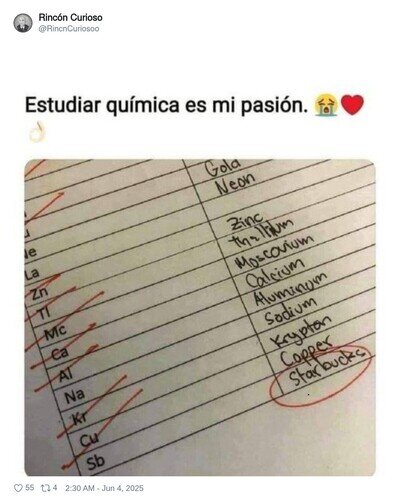 Rincón Curioso
@RincnCuriosoo
Estudiar química es mi pasión. 😭❤️
👌🏻
Gold
Neon
La
Zn Zinc
Tl thallium
Mc Moscovium
Ca Calcium
Al Aluminum
Na Sodium
Kr Krypton
Cu Copper
Sb Starbucks
55 4 2:30 AM - Jun 4, 2025